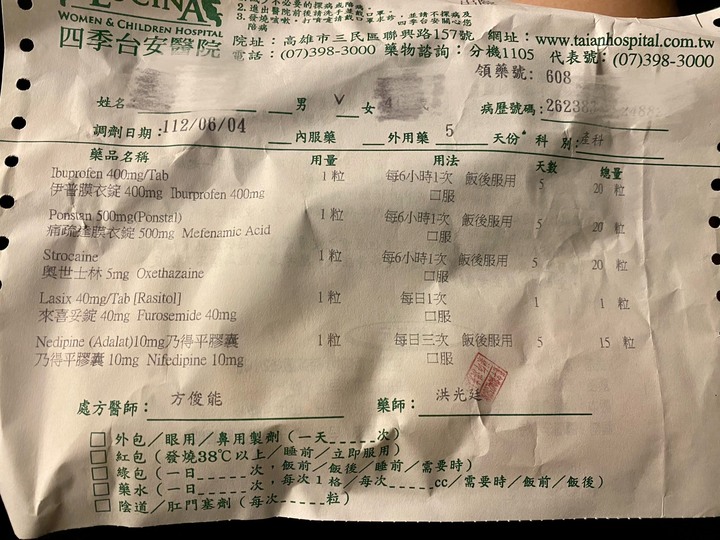 LUCINA
WOMEN & CHILDREN HOSPITAL
四季台安醫院
陪病
院址：高雄市三民區聯興路157號 網址：www.taianhospital.com.tw
電話：(07)398-3000 藥物諮詢：分機1105 代表號：(07)398-3000
領藥號: 608
姓名 男 V 女 病歷號碼:
調劑日期:112/06/04 內服藥 外用藥 5 天份 科別:產科
藥品名稱 用量 用法 天數 總量
Ibuprofen 400mg/Tab 1 粒 每6小時1次 飯後服用 5 20 粒
伊普膜衣錠 400mg Iburprofen 400mg 口服
Ponstan 500mg(Ponstal) 1 粒 每6小時1次 飯後服用 5 20 粒
痛疏達膜衣錠 500mg Mefenamic Acid 口服
Strocaine 1 粒 每6小時1次 飯後服用 5 20 粒
奧世士林 5mg Oxethazaine 口服
Lasix 40mg/Tab [Rasitol] 1 粒 每日1次 1 1 粒
來喜妥錠 40mg Furosemide 40mg 口服
Nedipine (Adalat)10mg乃得平膠囊 1 粒 每日三次 飯後服用 5 15 粒
乃得平膠囊 10mg Nifedipine 10mg 口服
處方醫師：方俊能 藥師：洪光廷
外包／眼用／鼻用製劑（一天_____次）
紅包（發燒38℃以上／睡前／立即服用）
綠包（一日______次，飯前／飯後／睡前／需要時）
藥水（一日______次，每次1格／每次_____cc／需要時／飯前／飯後）
陰道／肛門塞劑（每次_____粒）